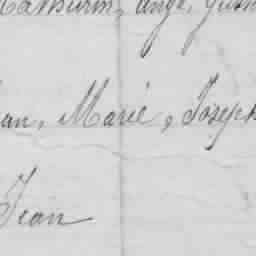 Mathurin, ange,
ean, Marie, Joseph
Jean